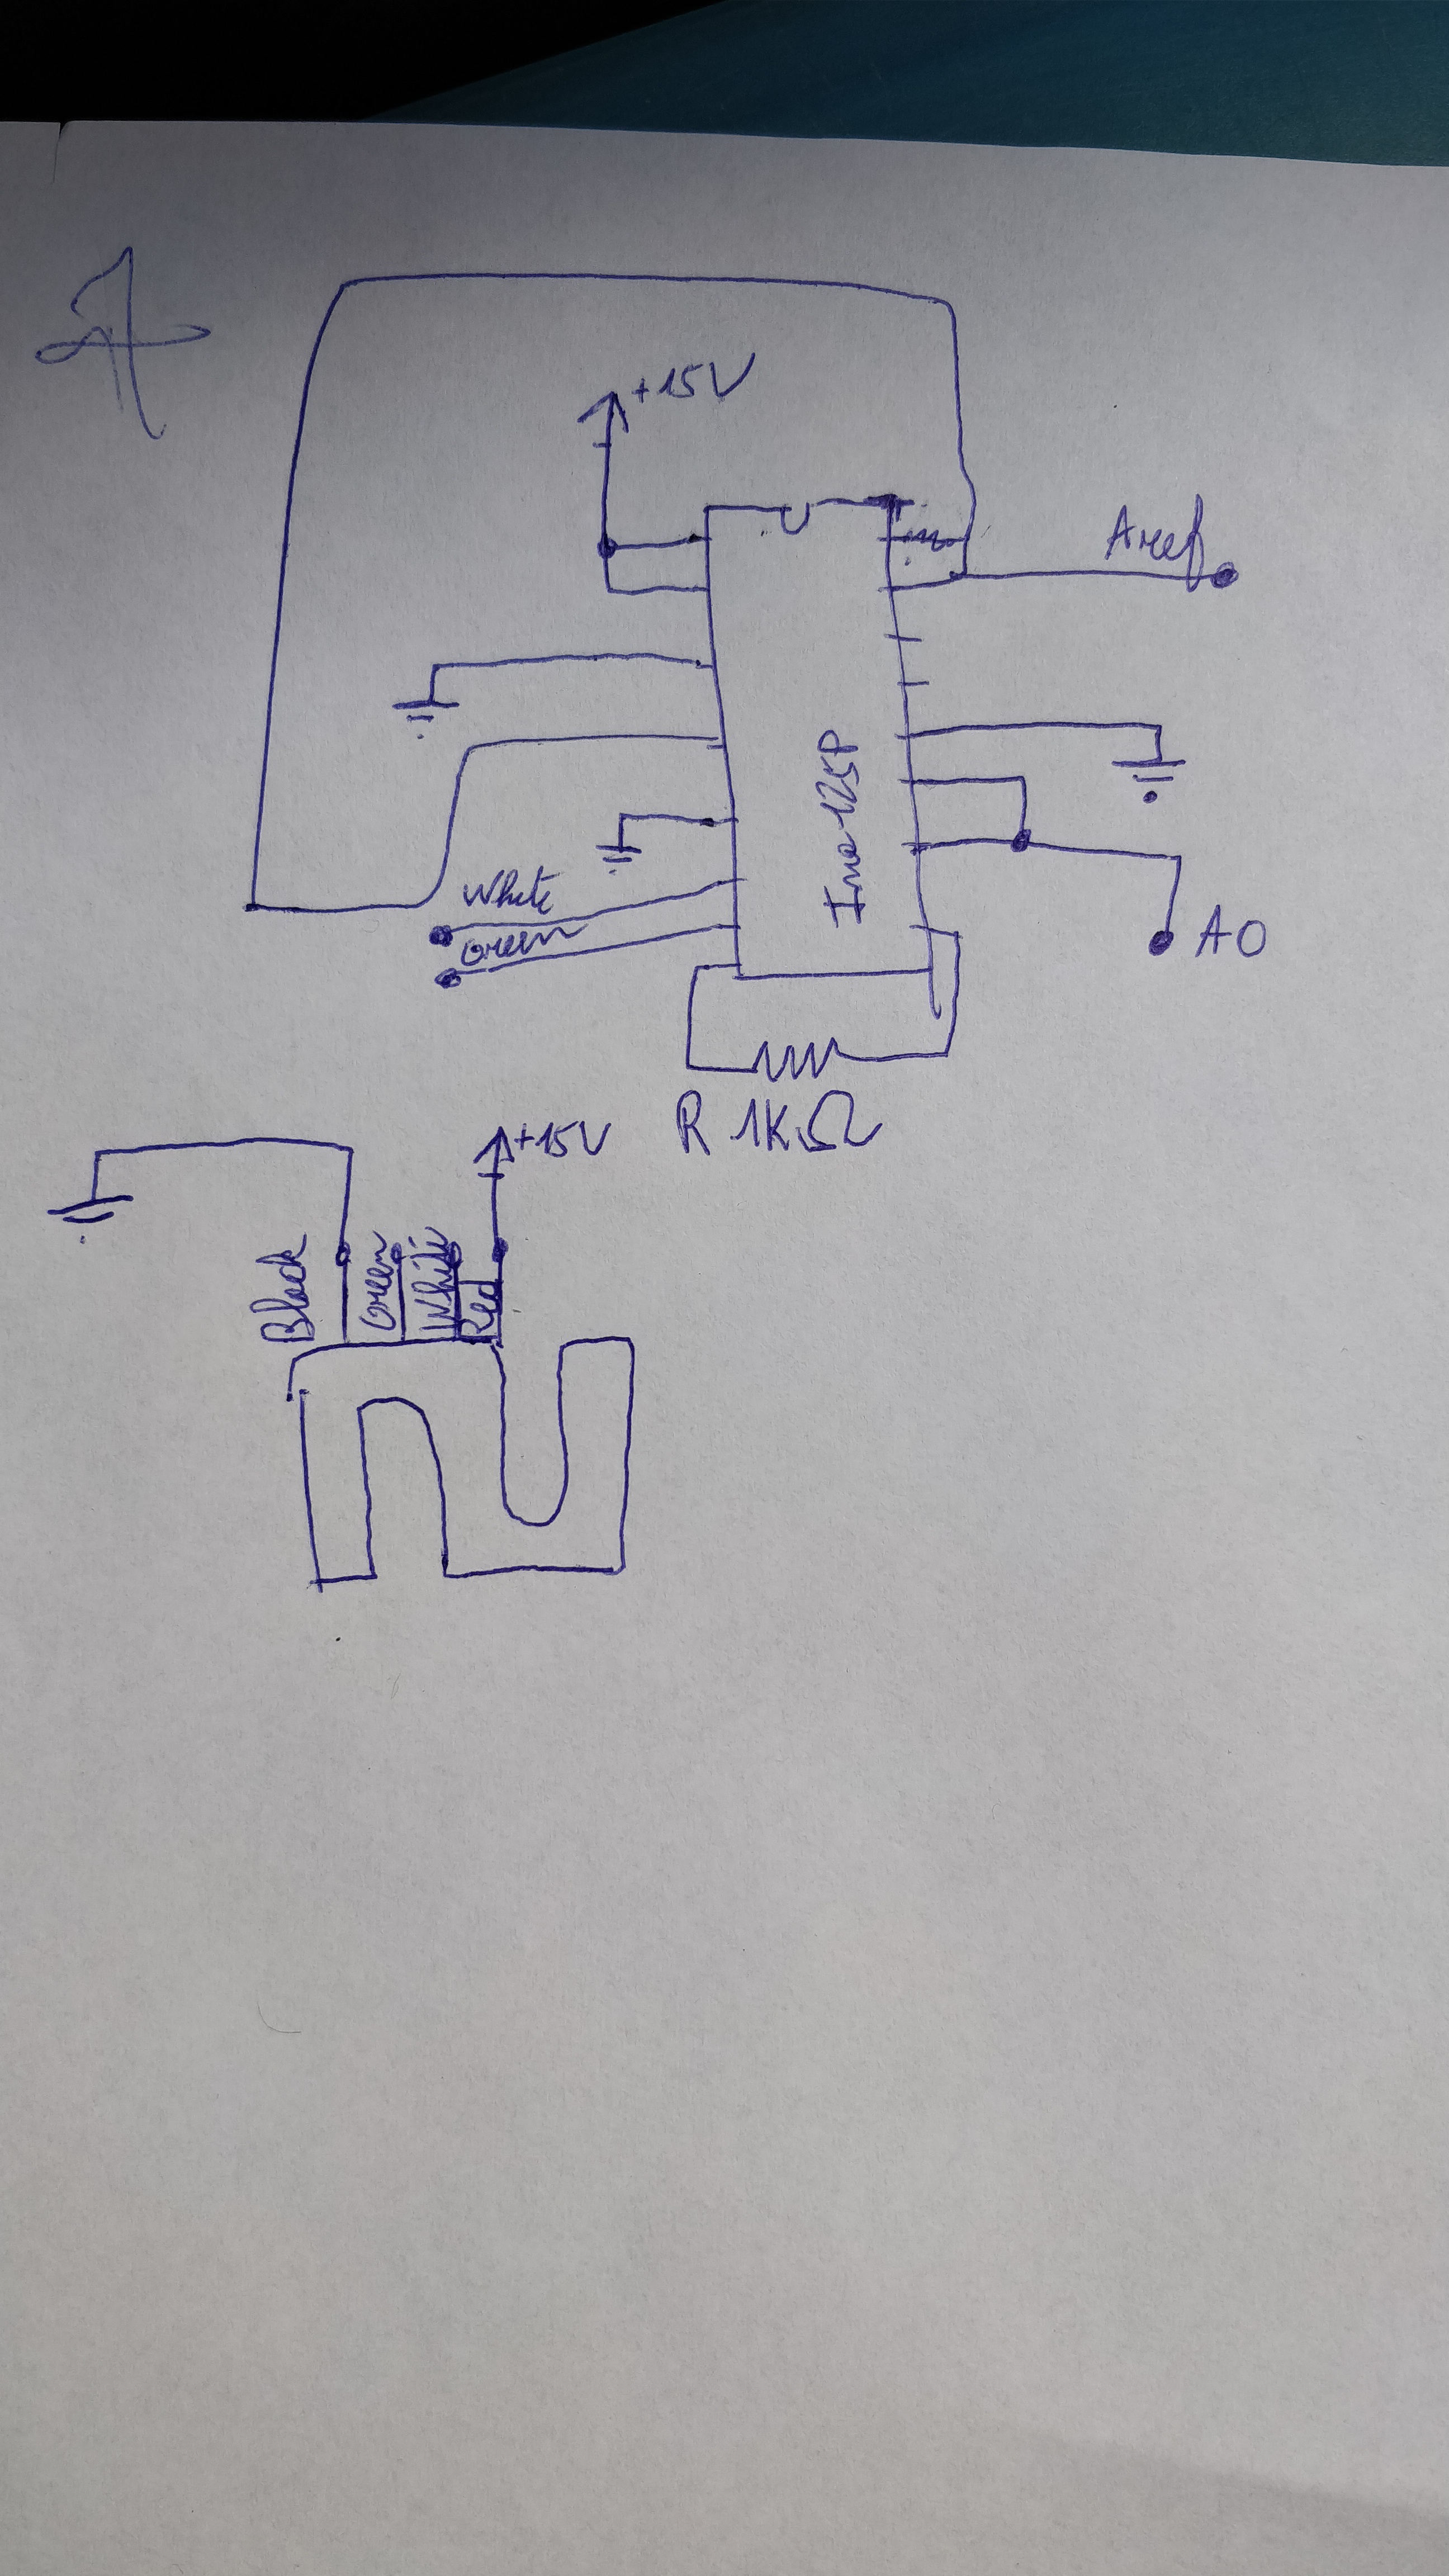 +15V
Aref
Ina125P
White
Green
A0
R 1KΩ
+15V
Black
Green
White
Red